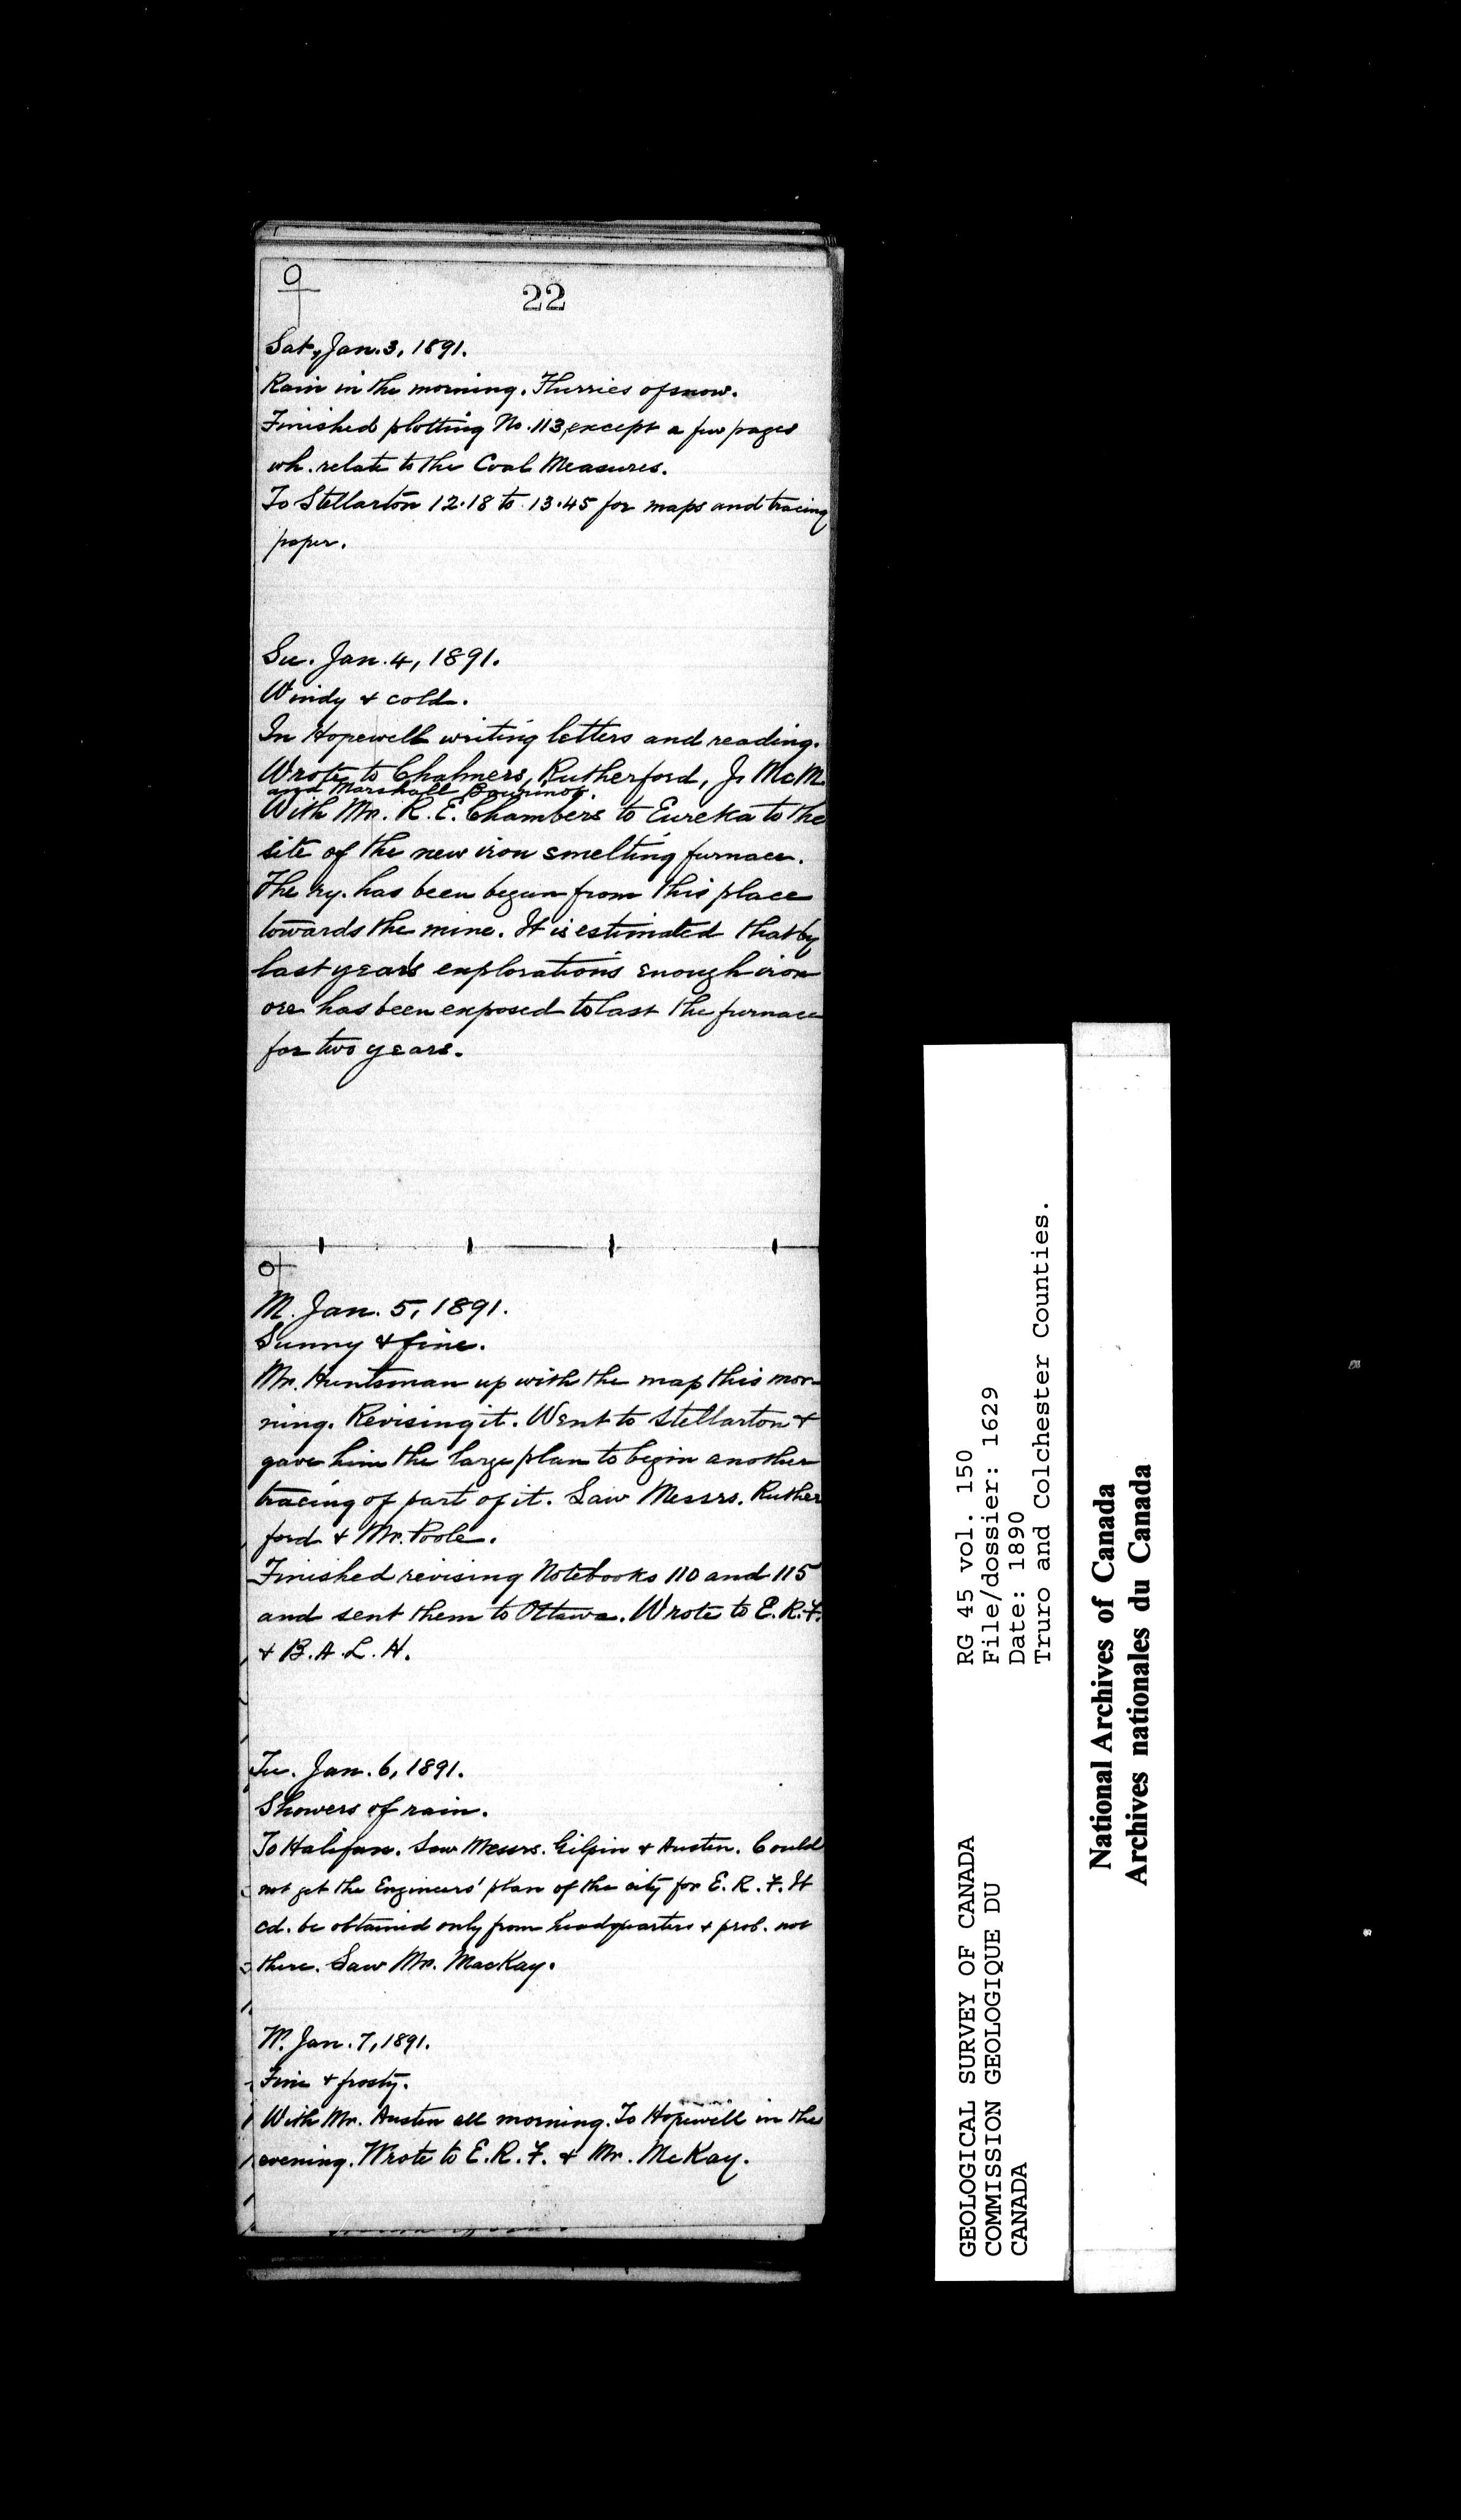 22
Sat, Jan. 3, 1891.
Rain in the morning. Flurries of snow.
Finished plotting No. 113, except a few pages
wh. relate to the Coal Measures.
To Stellarton 12.18 to 13.45 for maps and tracing
paper.
Su. Jan. 4, 1891.
Windy & cold.
In Hopewell writing letters and reading.
Wrote to Chalmers, Rutherford, J. McM.
and Marshall Bourinot.
With Mr. R. E. Chambers to Eureka to the
site of the new iron smelting furnace.
The ry. has been begun from this place
towards the mine. It is estimated that by
last year's explorations enough iron
ore has been exposed to last the furnace
for two years.
M. Jan. 5, 1891.
Sunny & fine.
Mr. Huntsman up with the map this mor-
ning. Revising it. Went to Stellarton &
gave him the large plan to begin another
tracing of part of it. Saw Messrs. Ruther
ford & Mr. Poole.
Finished revising Notebooks 110 and 115
and sent them to Ottawa. Wrote to E. R. F.
& B. A. L. H.
Tu. Jan. 6, 1891.
Showers of rain.
To Halifax. Saw Messrs. Gilpin & Austen. Could
not get the Engineers' plan of the city for E. R. F. It
cd. be obtained only from headquarters & prob. not
there. Saw Mr. MacKay.
W. Jan. 7, 1891.
Fine & frosty.
With Mr. Austen all morning. To Hopewell in the
evening. Wrote to E. R. F. & Mr. McKay.
GEOLOGICAL SURVEY OF CANADA
COMMISSION GEOLOGIQUE DU
CANADA
RG 45 vol. 150
File/dossier: 1629
Date: 1890
Truro and Colchester Counties.
National Archives of Canada
Archives nationales du Canada